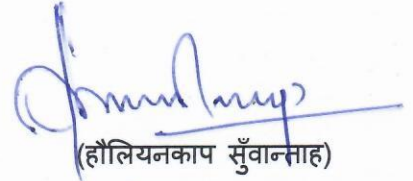 (हौलियनकाप सुँवान्ताह)